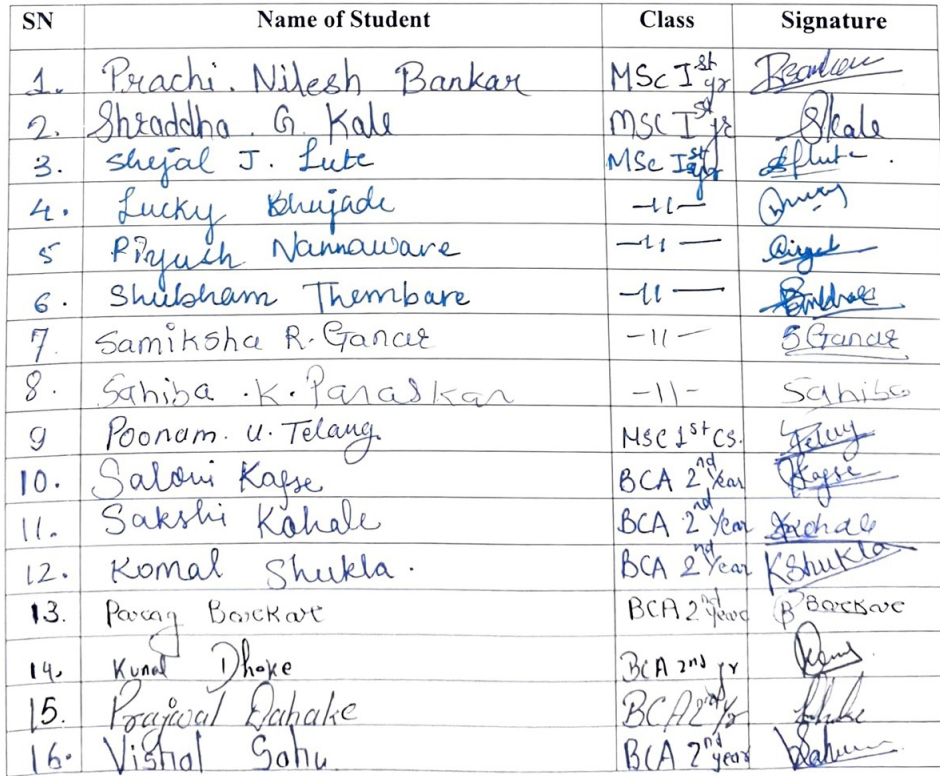 SN Name of Student Class Signature
1. Prachi. Nilesh Bankar MSc Ist yr
2. Shraddha. G. Kale MSC Ist yr SKale
3. Shejal J. Lute MSc Ist yr
4. Lucky Bhujade -11-
5 Piyush Nannaware -11-
6. Shubham Thembare -11-
7. Samiksha R. Ganar -11- SGanar
8. Sahiba .K. Paraskar -11- Sahiba
9 Poonam. U. Telang. MSC 1st CS.
10. Saloni Kapse BCA 2nd Year Kapse
11. Sakshi Kohale BCA 2nd Year
12. Komal Shukla. BCA 2nd Year KShukla
13. Parag Barkare BCA 2nd year
14. Kunal Dhoke BCA 2nd yr
15. Prajwal Dahake BCA 2nd Yr
16. Vishal Sahu BCA 2nd year